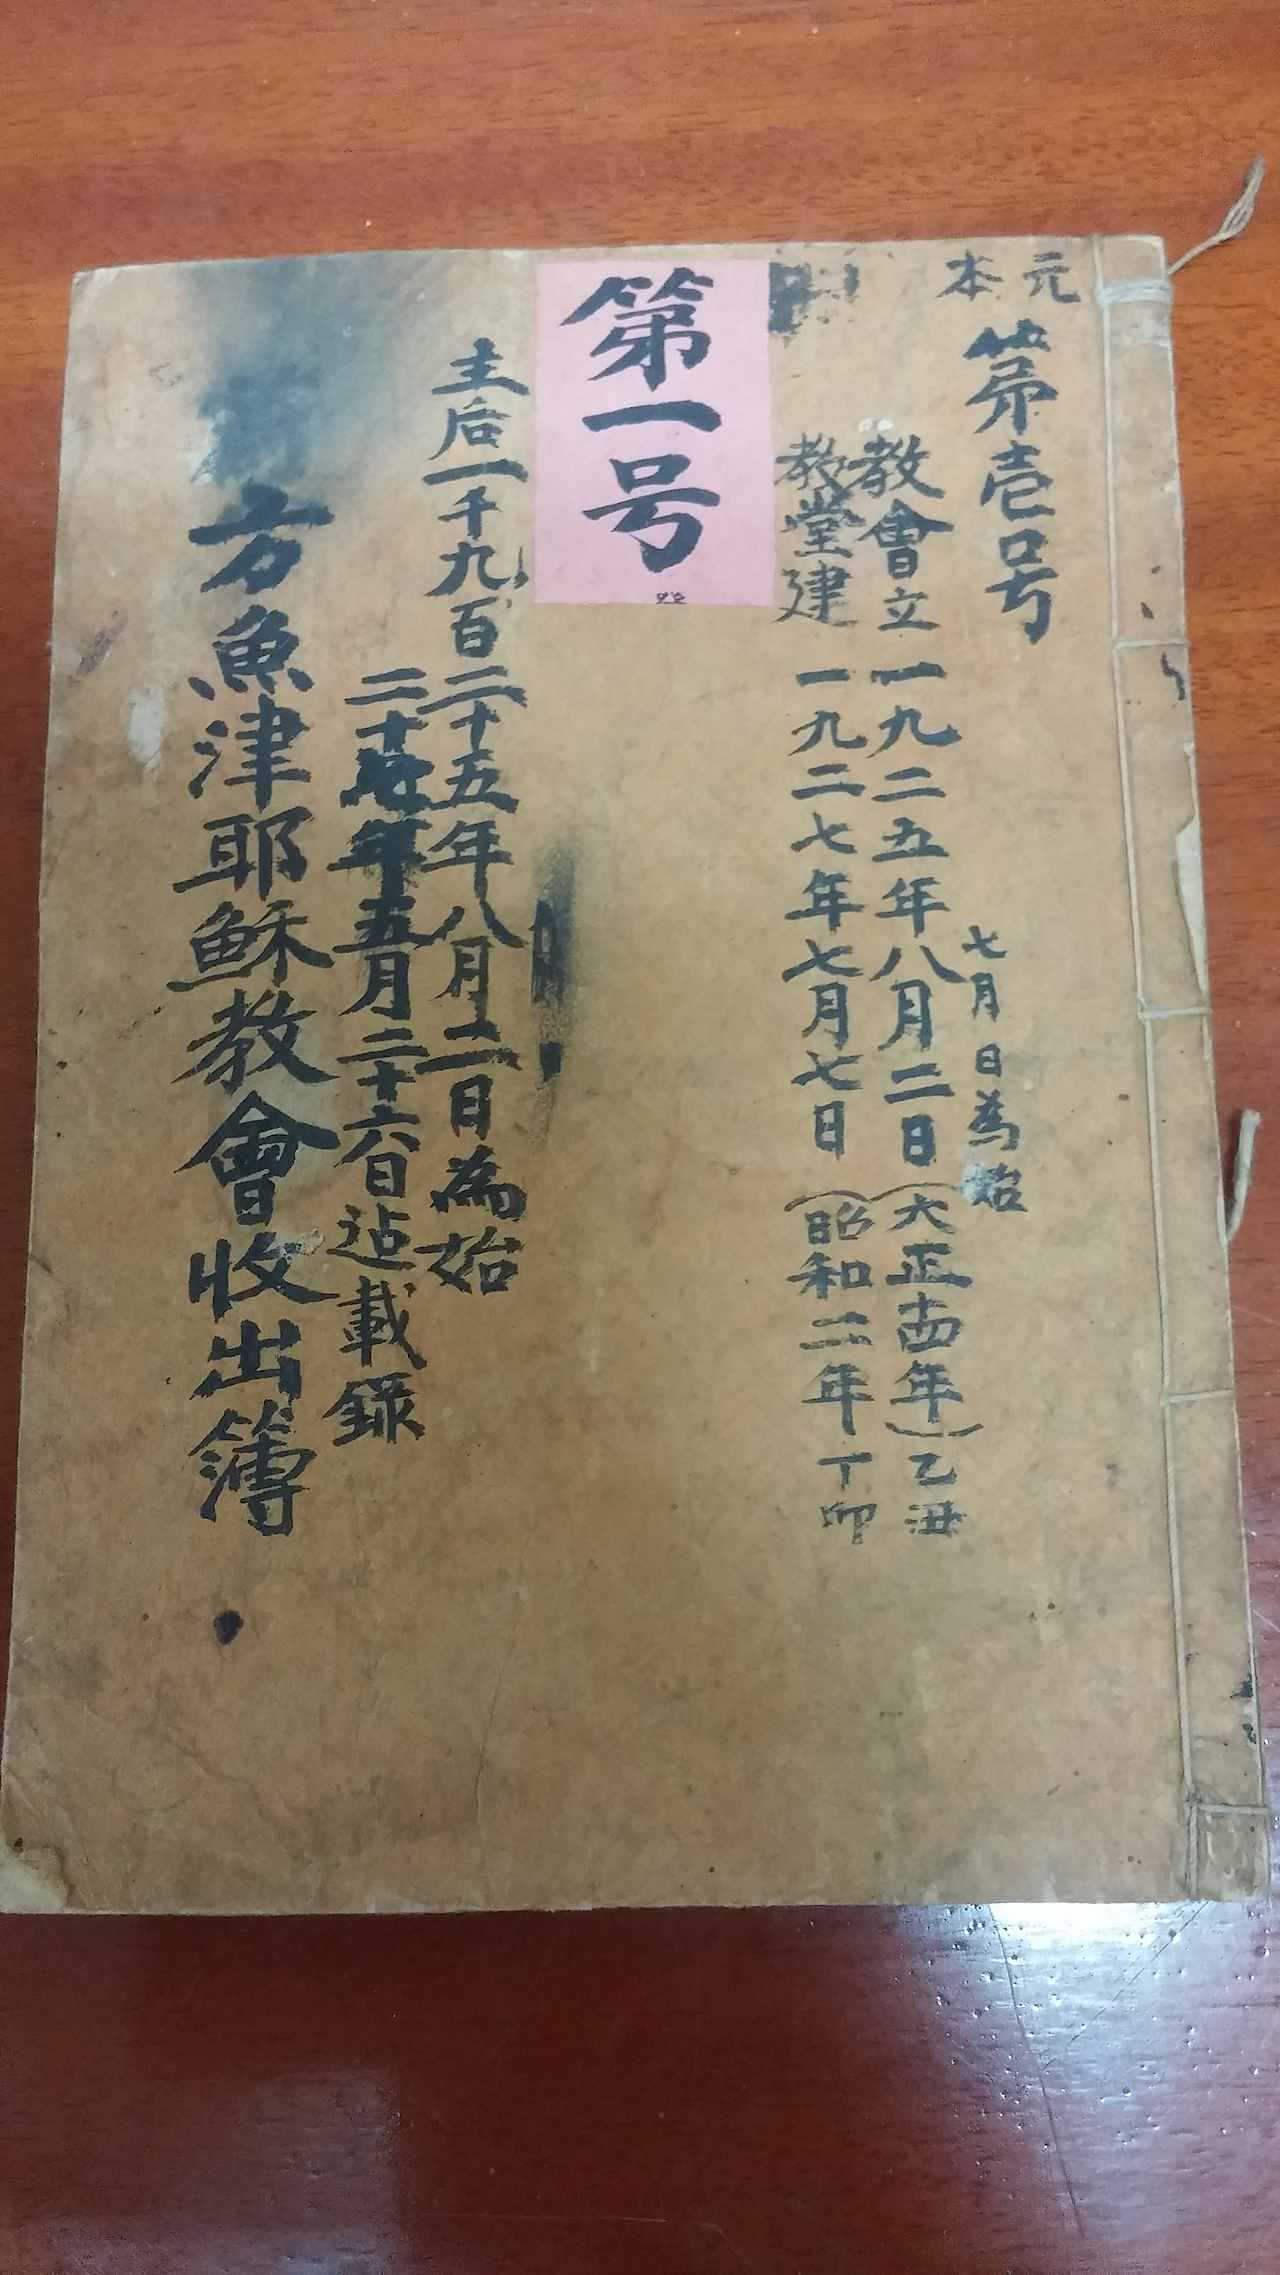 元本
第壱号
七月 日為始
教會立 一九二五年八月二日(大正十四年)乙丑
教堂建 一九二七年七月七日(昭和二年 丁卯
第一号
主后一千九百二十五年八月二日為始
二十七年五月二十六日迠載録
方魚津耶穌教會收出簿